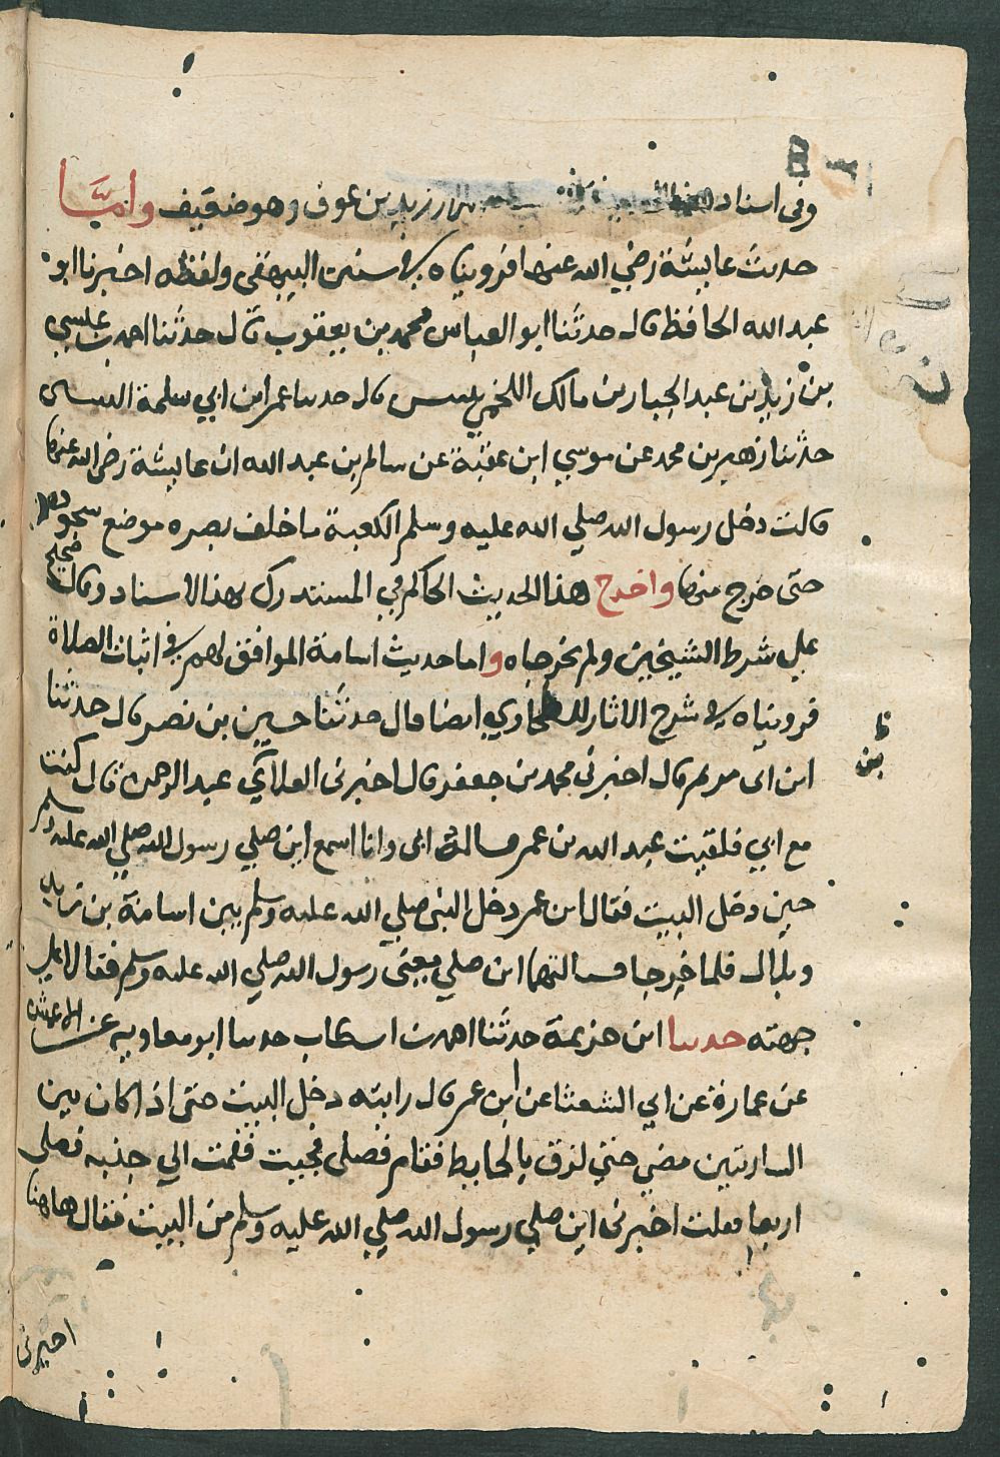 وفي اسناد زيد بن عوف وهو ضعيف واما
حديث عايشة رضي الله عنها فرويناه في سنن البيهقي ولفظه اخبرنا ابو
عبد الله الحافظ قال حدثنا ابو العباس محمد بن يعقوب قال حدثنا احمد بن عيسى
بن زيد بن عبد الجبار بن مالك اللخمي بتنيس قال حدثنا عمرو ابن ابي سلمة التنيسي
حدثنا زهير بن محمد عن موسي ابن عقبة عن سالم بن عبد الله ان عايشة رضي الله عنها
قالت دخل رسول الله صلي الله عليه وسلم الكعبة ما خلف بصره موضع سجوده
حتى خرج منها واخرج هذا الحديث الحاكم في المستدرك بهذا الاسناد وقال صحيح
علي شرط الشيخين ولم يخرجاه واما حديث اسامة الموافق لهم في اثبات الصلاة
فرويناه في شرح الاثار للطحاوي ايضا قال حدثنا حسين بن نصر قال حدثنا
ابن ابى مريم قال اخبرني محمد بن جعفر قال اخبرنى العلا بن عبد الرحمن قال كنت
مع ابي فلقيت عبد الله بن عمر فساله ابى وانا اسمع اين صلي رسول الله صلي الله عليه وسلم
حين دخل البيت فقال ابن عمر دخل النبى صلي الله عليه وسلم بين اسامة بن زيد
وبلال فلما خرجا سالتهما اين صلي يعنى رسول الله صلي الله عليه وسلم فقالا على
جهته حدثنا ابن خزيمة حدثنا احمد بن اسكاب حدثنا ابو معاوية عن الاعمش
عن عمارة عن ابي الشعثا عن ابن عمر قال رايته دخل البيت حتى اذا كان بين
الساريتين مضي حتي لزق بالحايط فقام فصلى فجيت فقمت الي جنبه فصلى
اربعا فقلت اخبرنى اين صلي رسول الله صلي الله عليه وسلم من البيت فقال هاهنا
اخبرنى